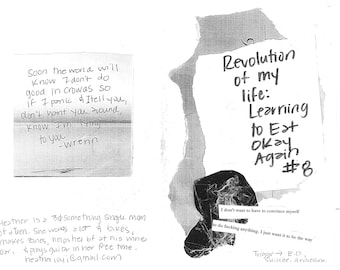 Soon the world will
know I don't do
good in crowds so
if I panic & I tell you,
don't want you around
know I'm lying
to you
-wrenin
Heather is a 30 something single mom
of a teen. She works a lot & bikes,
makes zines, helps her bf at his wine
& plays guitar in her free time.
heathrjoyj@gmail.com
Revolution
of my
life:
Learning
to Eat
Okay
Again
#8
I don't want to have to convince myself
to do fucking anything. I just want it to be the way
Trigger → E.D.